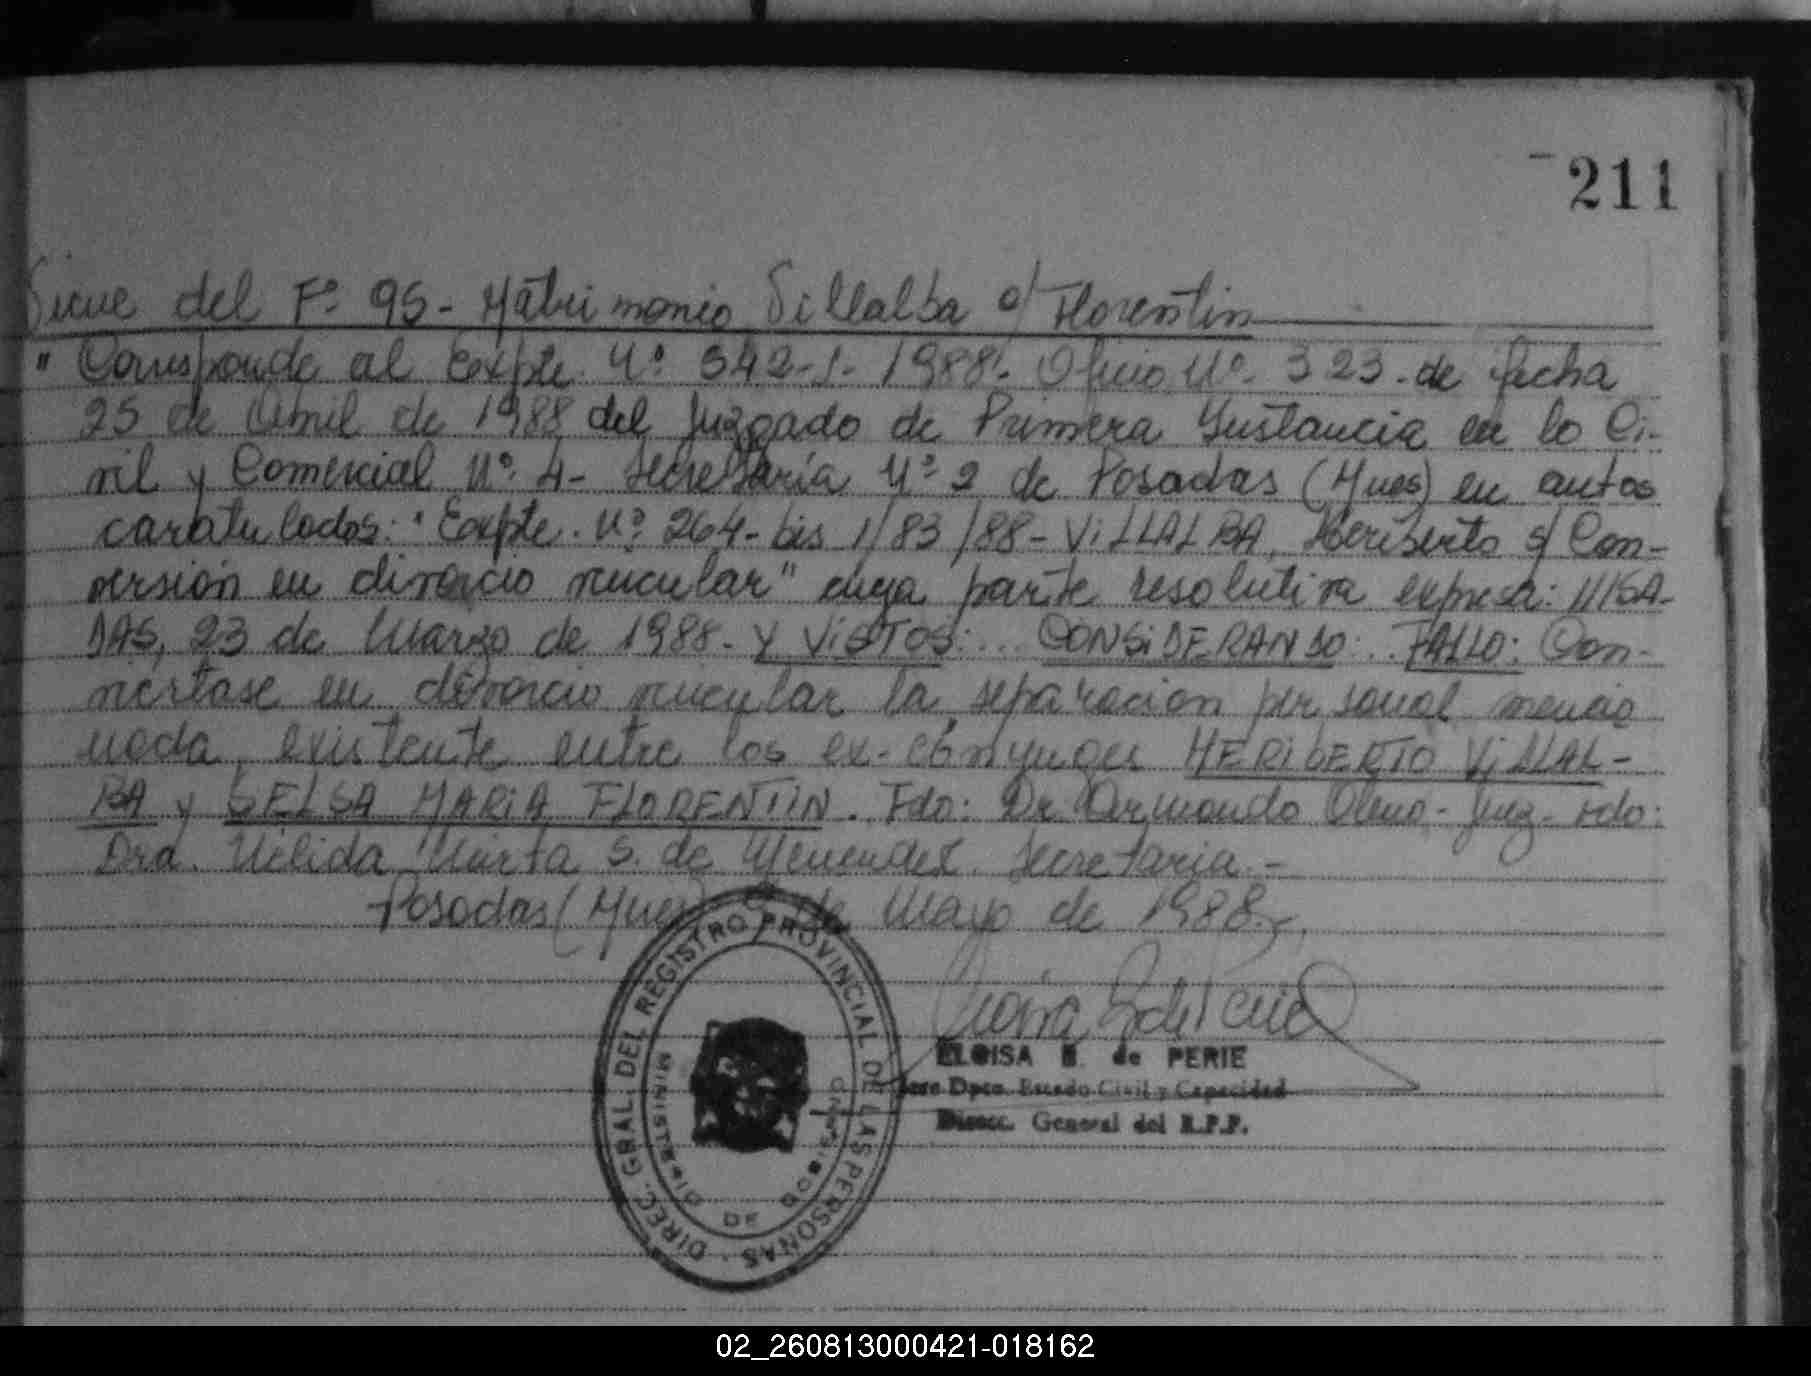 211
Sigue del Fº 95- Matrimonio Villalba c/ Florentin
" Corresponde al Expte. Nº 542-J- 1988- Oficio Nº 323- de fecha
25 de Abril de 1988 del Juzgado de Primera Instancia en lo Ci-
vil y Comercial Nº 4- Secretaría Nº 2 de Posadas (Mnes) en autos
caratulados: "Expte. Nº 264- bis 1/83/88- ViLLALBA, Heriberto s/ Con-
versión en divorcio vincular" cuya parte resolutiva expresa: ///SA-
DAS, 23 de Marzo de 1988- Y ViSTOS: ... CONSiDERANDO: .. FALLO: Con-
viertase en divorcio vincular la separacion personal mencio
nada, existente entre los ex-cónyuges HERiBERTO ViLLAL-
BA y MARiA FLORENTiN. Fdo: Dr. Armando - Juez- Fdo:
Dra. Nélida Mirta S. de Menendez. Secretaria.-
Posadas (Mnes) de Mayo de 1988.-
DIREC. GRAL. DEL REGISTRO PROVINCIAL DE LAS PERSONAS
MINISTERIO DE GOBIERNO
ELOISA de PERIE
Dpto. Estado Civil y Capacidad
Direcc. General del R.P.P.
02_260813000421-018162